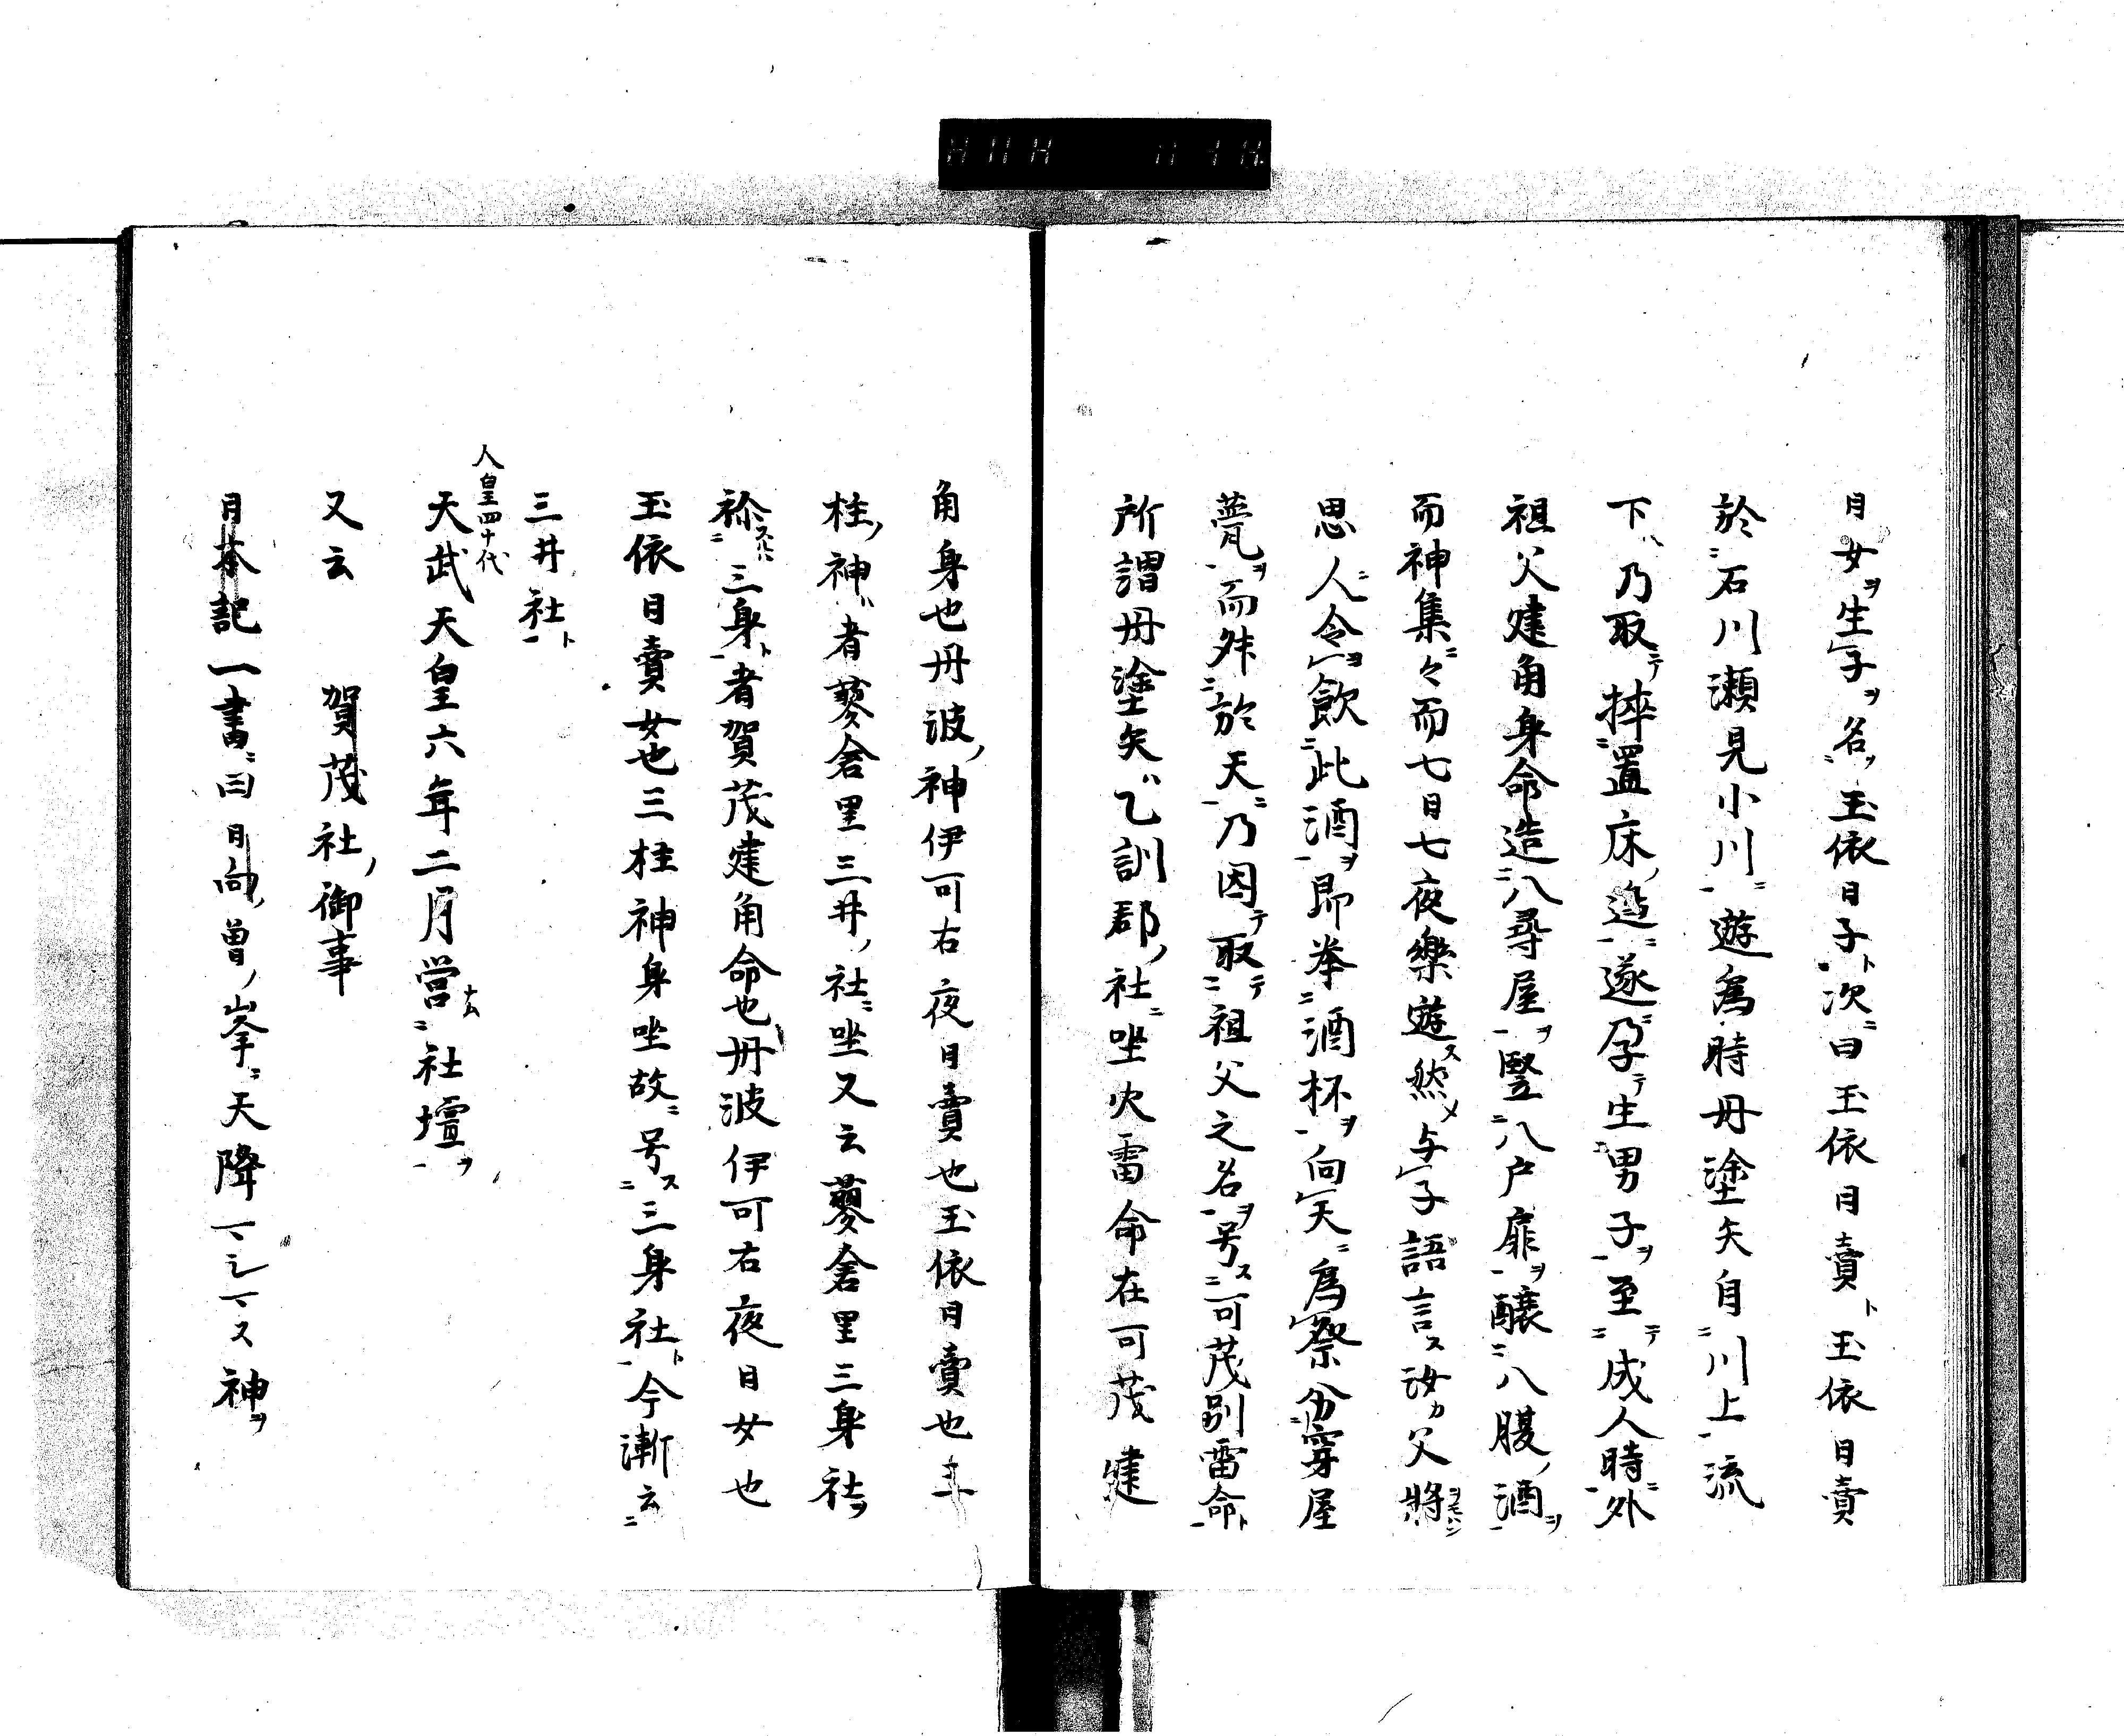 日女ヲ生子ヲ名玉依日子ト次ニ曰玉依日賣ト玉依日賣
於石川瀬見小川ニ遊為時丹塗矢自川上流
下乃取テ挿置床ノ邊ニ遂ニ孕テ生男子ヲ至テ成人時ニ外
祖父建角身命造八尋屋ヲ竪八戸扉ヲ醸八腹ノ酒ヲ
而神集々而七日七夜樂遊ス然メ与子語言ス汝カ父將
思人ニ令ヲ飲此酒ヲ即挙酒杯ヲ向天ニ為祭分穿屋
甍ヲ而舛於天ニ乃因テ取テ祖父之名ヲ号ス可茂別雷命ト
所謂丹塗矢ハ乙訓郡ノ社ニ坐火雷命在可茂建
角身也丹波ノ神伊可右夜日賣也玉依日賣也
柱ノ神ハ者蓼倉里三井ノ社ニ坐又云蓼倉里三身社ヲ
称スルニ三身ト者賀茂建角命也丹波伊可右夜日女也
玉依日賣女也三柱神身坐故ニ号ス三身社ト今漸云
三井社ト
人皇四十代
天武天皇六年二月営ナム社壇ヲ
又云　賀茂社ノ御事
日本記一書ニ曰日向ノ曽ノ峯ニ天降
神ヲ